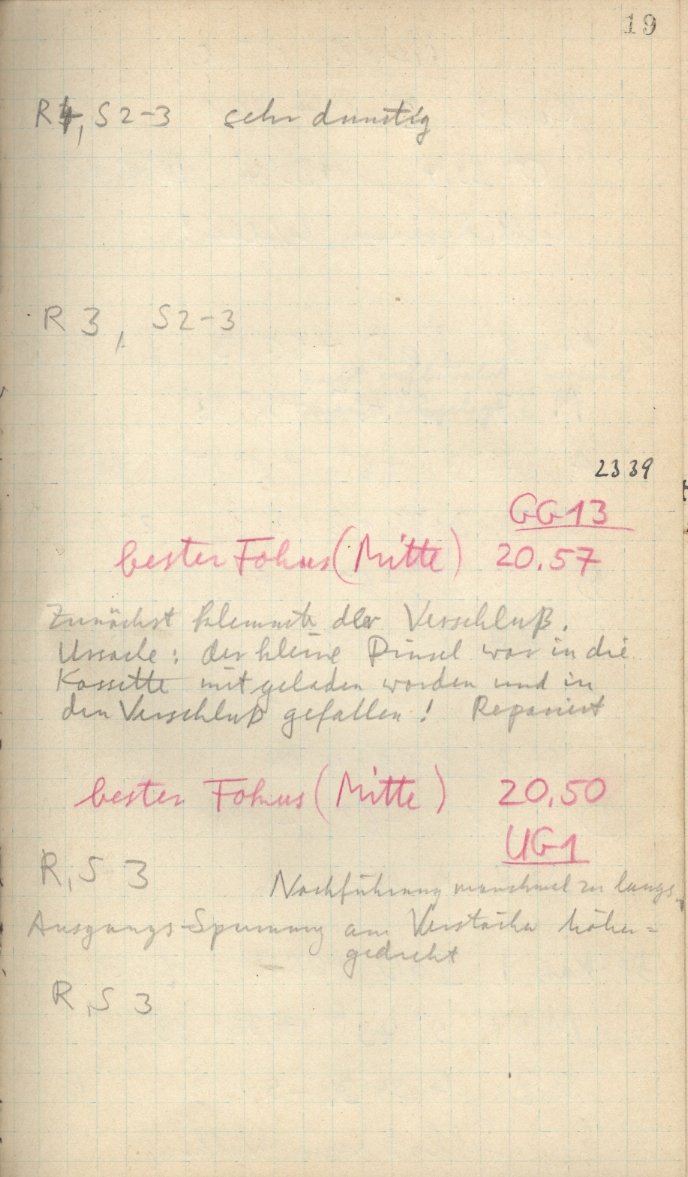 19
R4, S 2-3 sehr dunstig
R 3, S 2-3
2339
GG13
bester Fokus (Mitte) 20.57
Zunächst klemmte der Verschluß.
Ursache: der kleine Pinsel war in die
Kassette mit geladen worden und in
den Verschluß gefallen! Repariert
bester Fokus (Mitte) 20,50
UG1
R, S 3
Nachführung manchmal zu langs.
Ausgangs-Spannung am Verstärker höher=
gedreht
R, S 3